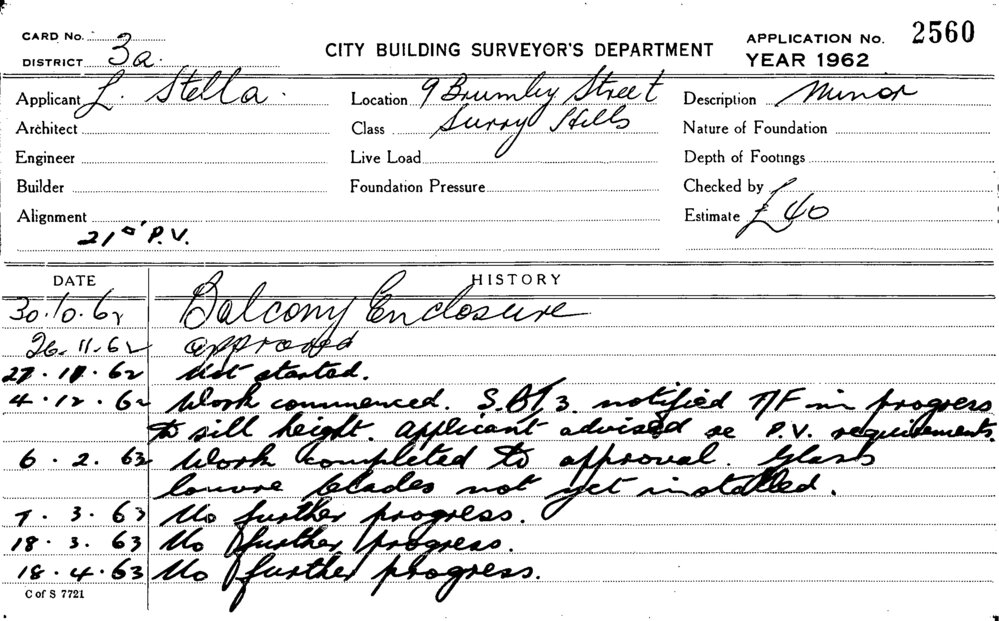 CARD No.
DISTRICT 3a.
CITY BUILDING SURVEYOR'S DEPARTMENT
APPLICATION No. 2560
YEAR 1962
Applicant L. Stella.
Location 9 Brumley Street
Description Minor
Architect
Class Surry Hills
Nature of Foundation
Engineer
Live Load
Depth of Footings
Builder
Foundation Pressure
Checked by
Alignment
Estimate £40
P.V.
DATE HISTORY
30.10.62 Balcony Enclosure
26.11.62 approved
27.11.62 Not started.
4.12.62 Work commenced. notified T/F in progress
to sill height. applicant advised re P.V. requirements.
6.2.63 Work completed to approval. Glass
louvre blades not yet installed.
7.3.63 No further progress.
18.3.63 No further progress.
18.4.63 No further progress.
C of S 7721